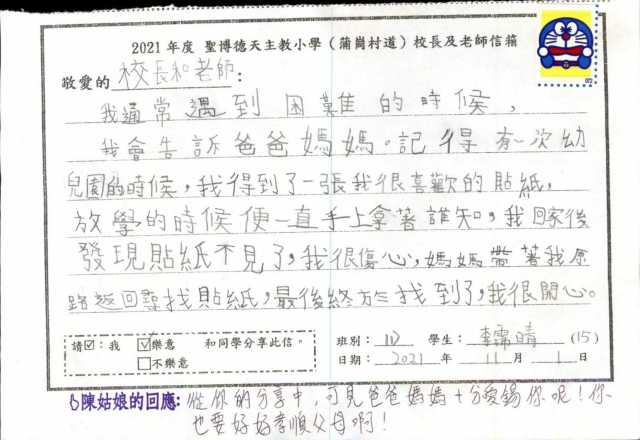 2021 年度 聖博德天主教小學(蒲崗村道)校長及老師信箱
敬愛的校長和老師:
我通常遇到困難的時候,
我會告訴爸爸媽媽。記得有一次幼
兒園的時候,我得到了一張我很喜歡的貼紙,
放學的時候便一直手上拿著誰知,我回家後
發現貼紙不見了,我很傷心,媽媽帶著我原
路返回尋找貼紙,最後終於找到了,我很開心。
請☑:我 ☑樂意 和同學分享此信。
□不樂意
班別: 1D 學生: 李霈晴 (15)
日期: 2021 年 11 月 1 日
陳姑娘的回應: 從你的分享中,可見爸爸媽媽十分愛錫你呢!你
也要好好孝順父母啊!